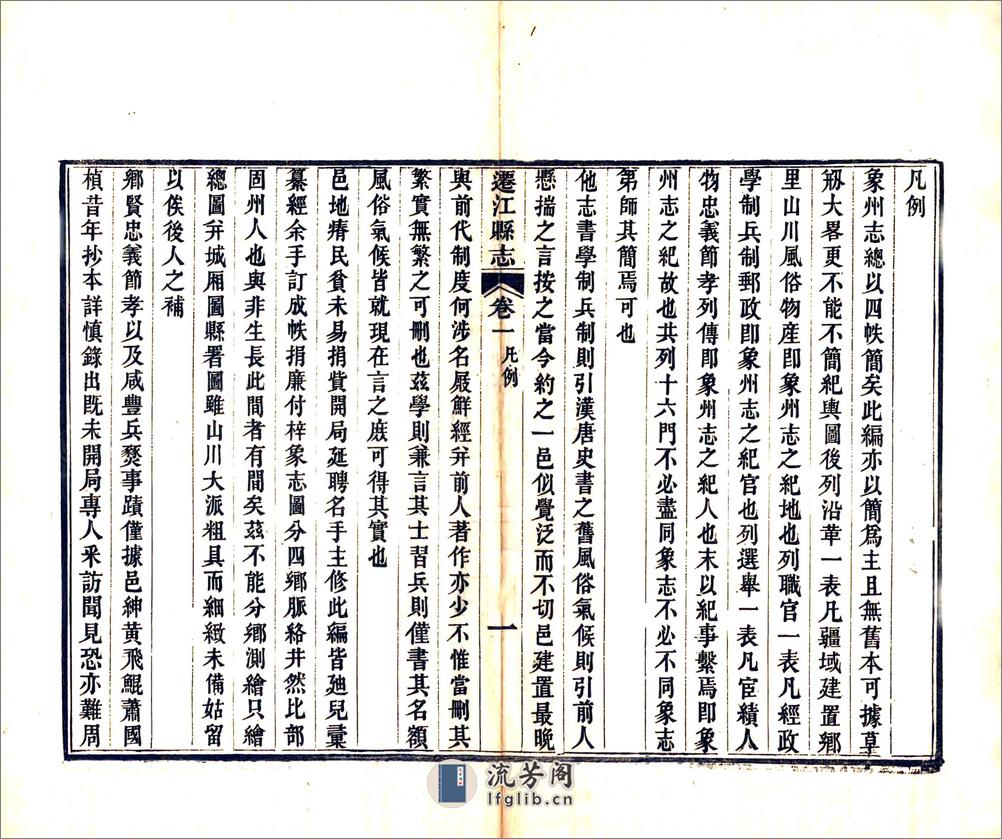 凡例
象州志總以四帙簡矣此編亦以簡爲主且無舊本可據草
剏大畧更不能不簡紀輿圖後列沿革一表凡疆域建置鄉
里山川風俗物產卽象州志之紀地也列職官一表凡經政
學制兵制郵政卽象州志之紀官也列選舉一表凡宦績人
物忠義節孝列傳卽象州志之紀人也末以紀事繫焉卽象
州志之紀故也共列十六門不必盡同象志不必不同象志
第師其簡焉可也
他志書學制兵制則引漢唐史書之舊風俗氣候則引前人
懸揣之言按之當今約之一邑似覺泛而不切邑建置最晚
遷江縣志 卷一 凡例 一
與前代制度何涉名屐鮮經弁前人著作亦少不惟當刪其
繁實無繁之可刪也茲學則兼言其士習兵則僅書其名額
風俗氣候皆就現在言之庶可得其實也
邑地瘠民貧未易捐貲開局延聘名手主修此編皆廸兒彙
纂經余手訂成帙捐廉付梓象志圖分四鄉脈絡井然比部
固州人也與非生長此間者有間矣茲不能分鄉測繪只繪
總圖弁城廂圖縣署圖雖山川大派粗具而細緻未備姑留
以俟後人之補
鄉賢忠義節孝以及咸豐兵燹事蹟僅據邑紳黃飛鯤蕭國
楨昔年抄本詳慎錄出既未開局專人采訪聞見恐亦難周
流芳阁
lfglib.cn